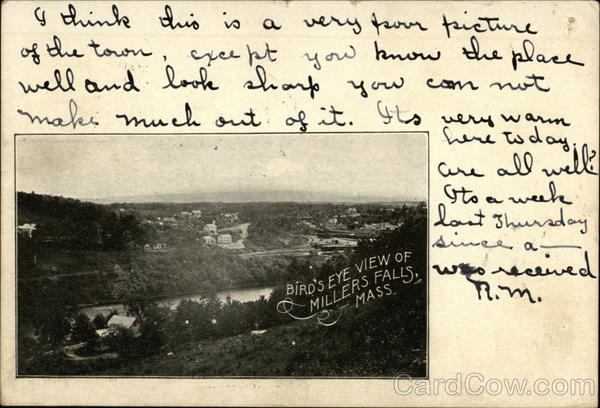 I think this is a very poor picture
of the town, except you know the place
well and look sharp you can not
make much out of it. Its very warm
here today.
are all well?
Its a week
last Thursday
since a—
was received
R.M.
BIRD'S EYE VIEW OF
MILLERS FALLS,
MASS.
CardCow.com